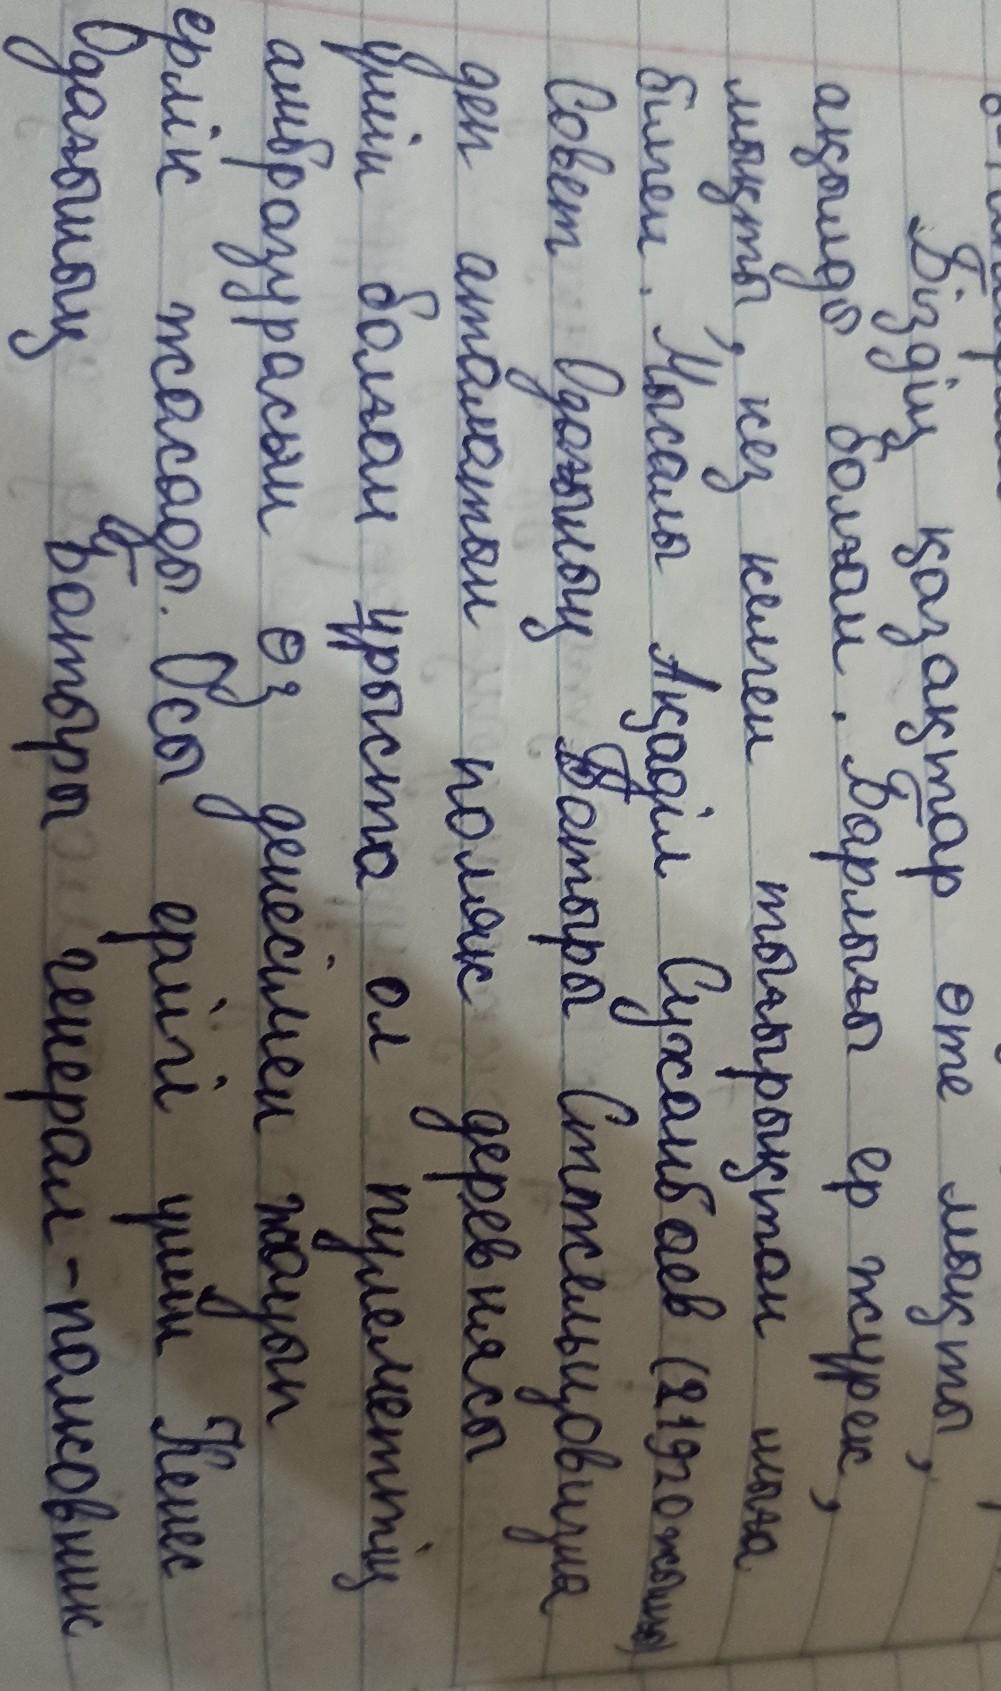 Біздің қазақтар өте мықты,
ақылды болған. Барлығы ер жүрек,
мықты, кез келген тығырықтан шыға
білген. Мысалы Ақаділ Сухамбаев (21920жылы)
Совет Одағының Батыры Стжельцовизна
деп аталатын поляк деревнясы
үшін болған ұрыста ол пулеметтің
амбразурасын өз денесімен жауып
ерлік жасады. Осы ерлігі үшін Кеңес
Одағының Батыры генерал-полковник